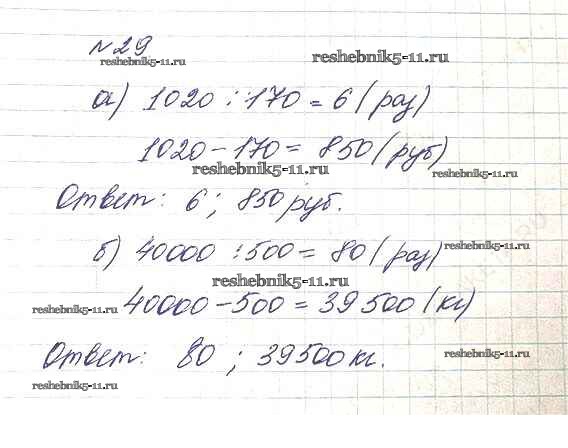 №29
reshebnik5-11.ru reshebnik5-11.ru
а) 1020 : 170 = 6 (раз)
1020 - 170 = 850 (руб)
reshebnik5-11.ru reshebnik5-11.ru
Ответ: 6 ; 850 руб.
б) 40000 : 500 = 80 (раз) reshebnik5-11.ru
reshebnik5-11.ru
reshebnik5-11.ru 40000 - 500 = 39500 (кг)
Ответ: 80 ; 39500 кг. reshebnik5-11.ru
reshebnik5-11.ru